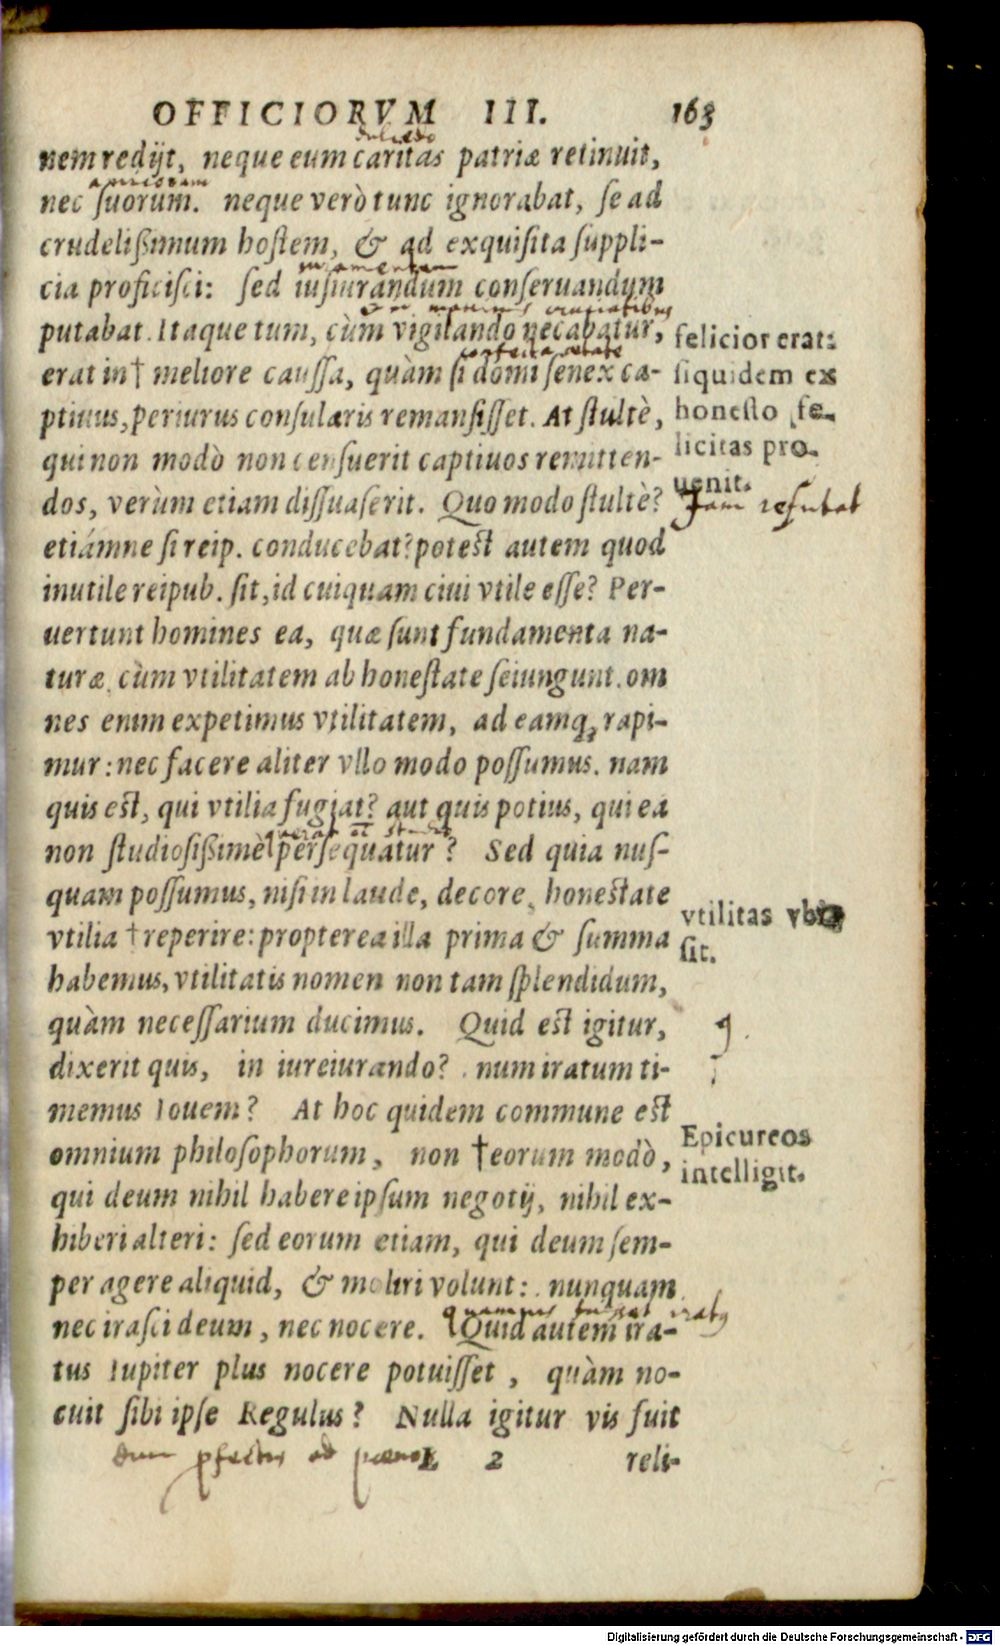 OFFICIORVM III. 163
dulcedo
nem redijt, neque eum caritas patriæ retinuit,
amicorum
nec ſuorum. neque verò tunc ignorabat, ſe ad
crudelißimum hoſtem, & ad exquiſita ſuppli-
cia proficiſci: ſed iuſiurandum conſeruandum
maximis cruciatibus
putabat. Itaque tum, cùm vigilando necabatur,
confecta aetate
erat in † meliore cauſſa, quàm ſi domi ſenex ca-
ptiuus, periurus conſularis remanſiſſet. At ſtultè,
qui non modò non cenſuerit captiuos remitten-
dos, verùm etiam diſſuaſerit. Quo modo ſtultè?
etiámne ſi reip. conducebat? poteſt autem quod
inutile reipub. ſit, id cuiquam ciui vtile eſſe? Per-
uertunt homines ea, quæ ſunt fundamenta na-
turæ, cùm vtilitatem ab honeſtate ſeiungunt. om
nes enim expetimus vtilitatem, ad eamq; rapi-
mur: nec facere aliter vllo modo poſſumus. nam
quis eſt, qui vtilia fugiat? aut quis potius, qui ea
non ſtudioſißimè perſequatur? Sed quia nuſ-
quam poſſumus, niſi in laude, decore, honeſtate
vtilia † reperire: propterea illa prima & ſumma
habemus, vtilitatis nomen non tam ſplendidum,
quàm neceſſarium ducimus. Quid eſt igitur,
dixerit quis, in iureiurando? num iratum ti-
memus Iouem? At hoc quidem commune eſt
omnium philoſophorum, non † eorum modò,
qui deum nihil habere ipſum negotij, nihil ex-
hiberi alteri: ſed eorum etiam, qui deum ſem-
per agere aliquid, & moliri volunt: nunquam
nec iraſci deum, nec nocere. Quid autem ira-
tus Iupiter plus nocere potuiſſet, quàm no-
cuit ſibi ipſe Regulus? Nulla igitur vis fuit
L 2 reli-
felicior erat:
ſiquidem ex
honeſto fe-
licitas pro-
uenit.
Jam refutat
vtilitas vbi
ſit.
Epicureos
intelligit.